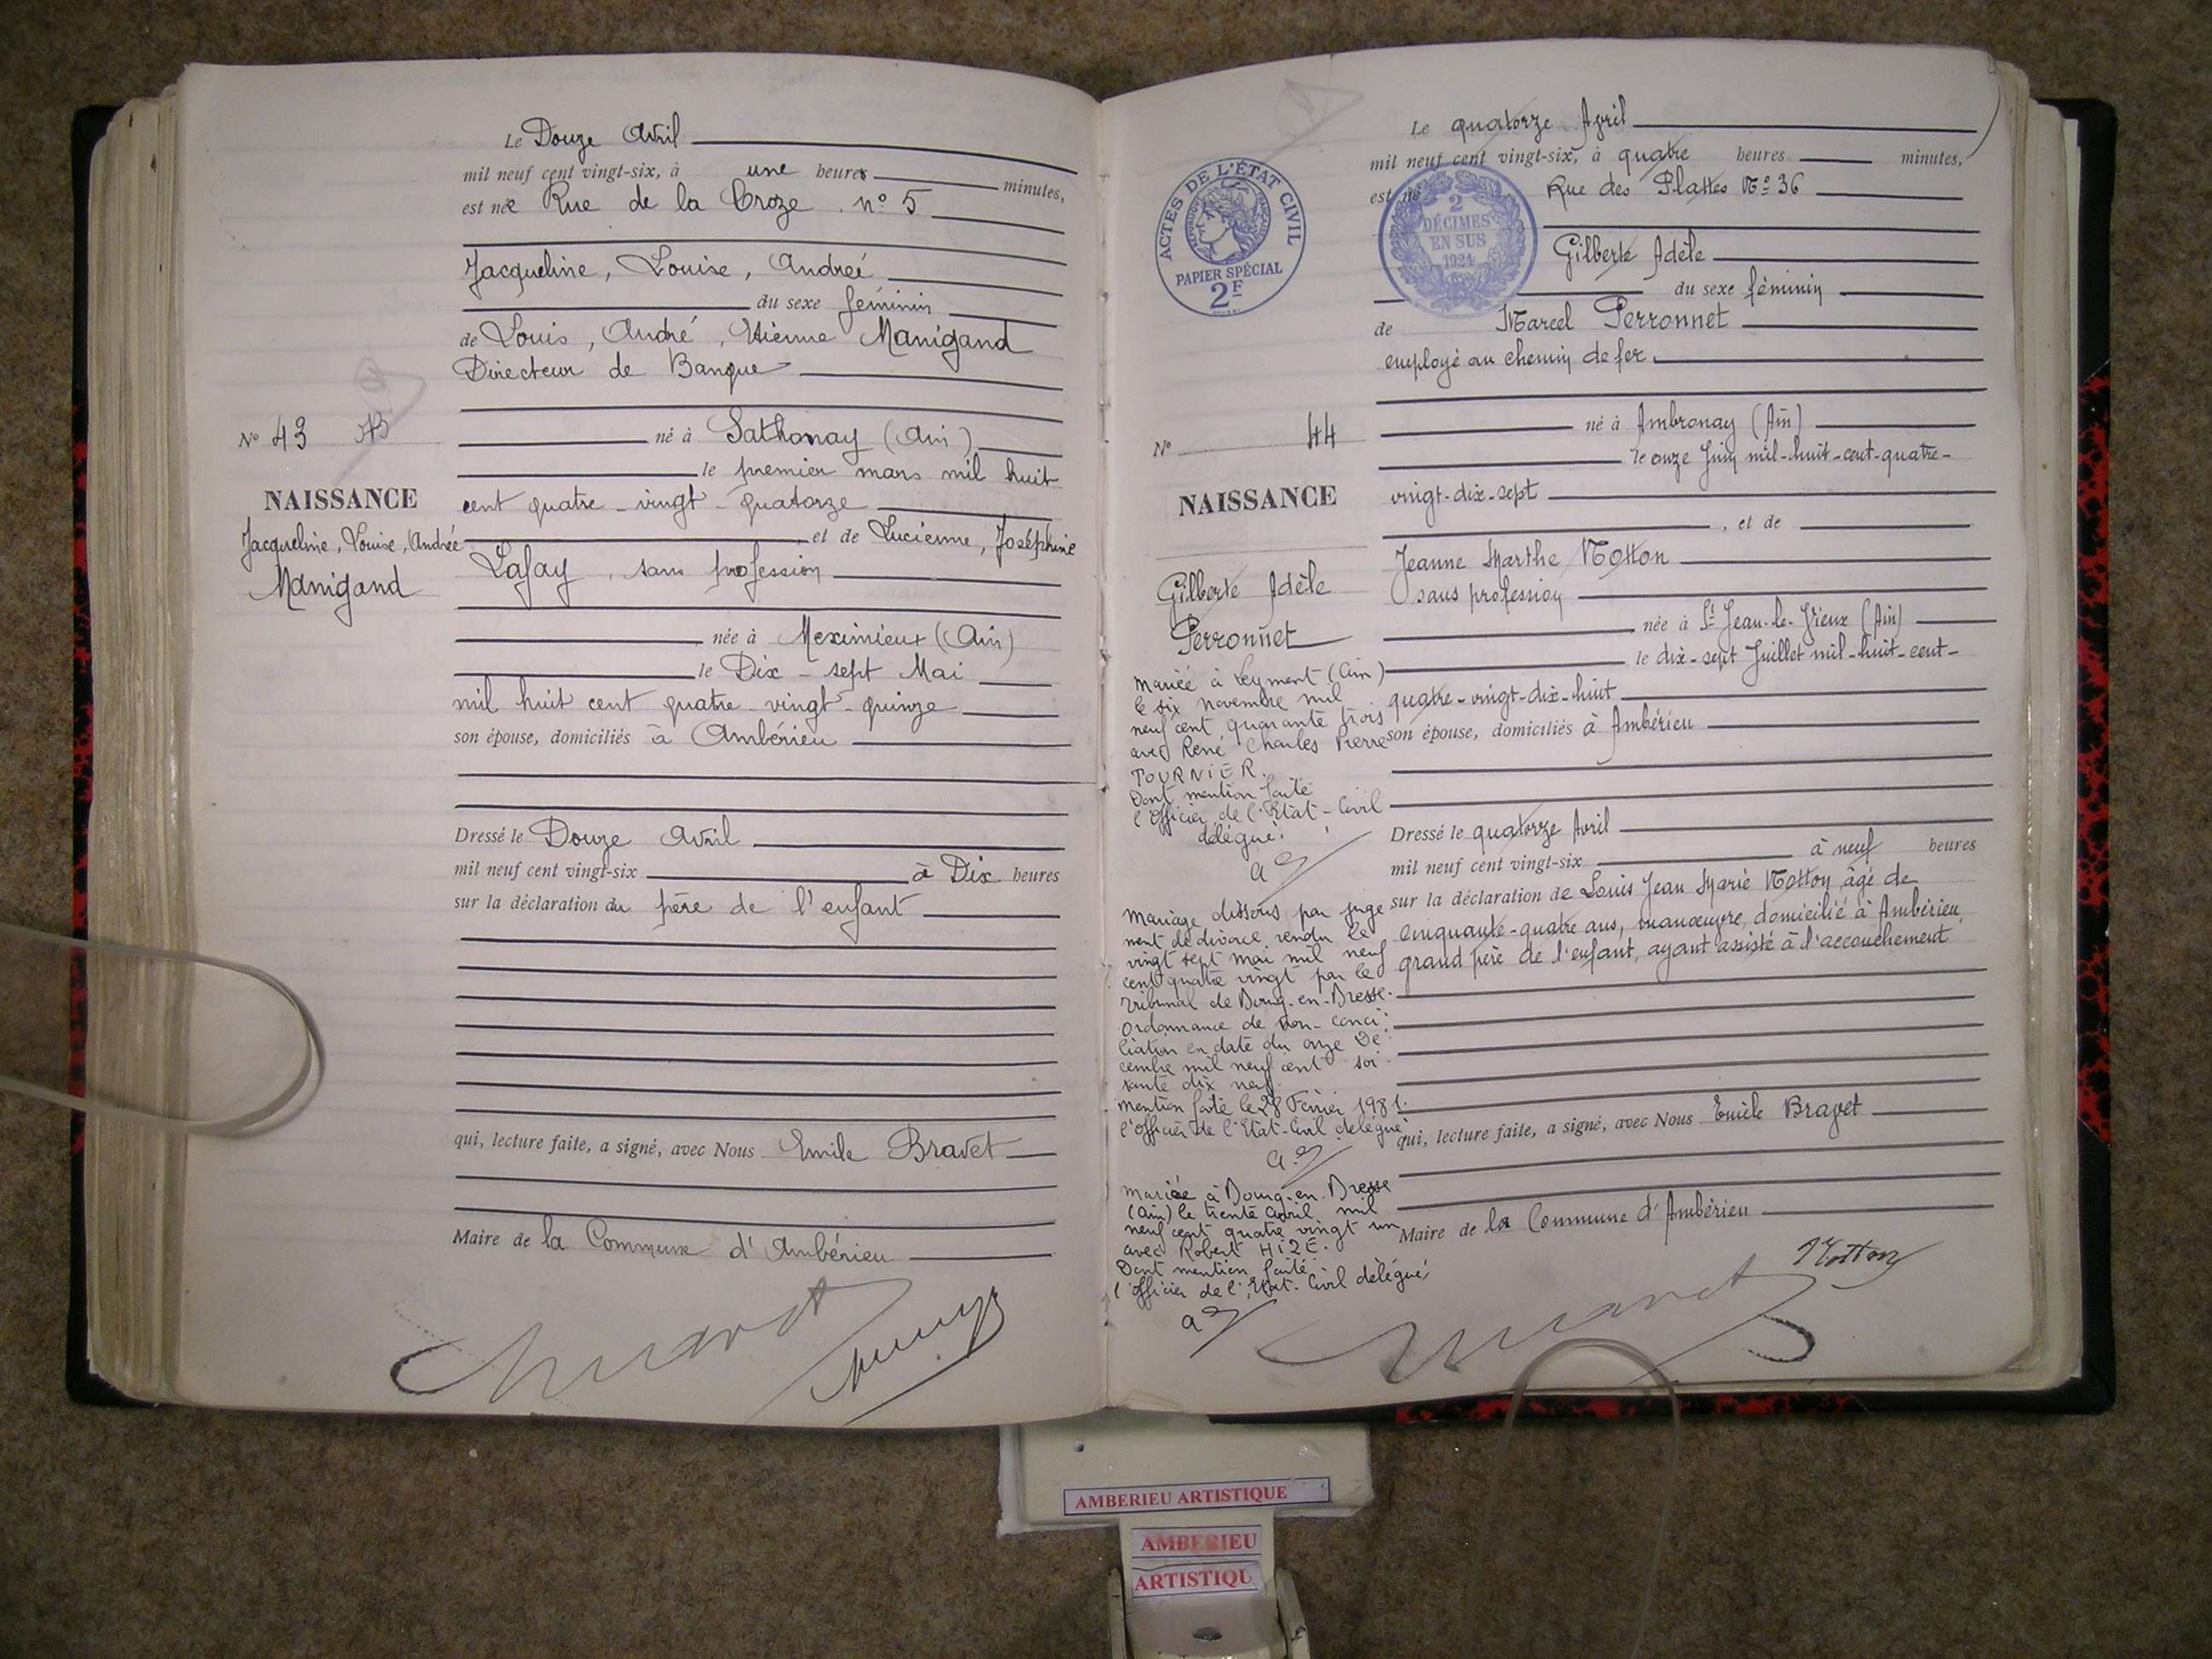 Le Douze Avril
mil neuf cent vingt-six, à une heures minutes,
est née Rue de la Croze . n° 5
Jacqueline, Louise, Andreé
du sexe féminin
de Louis, André, Etienne Manigand
Directeur de Banque
N° 43
né à Sathonay (Ain)
le premier mars mil huit
NAISSANCE
cent quatre-vingt-quatorze
Jacqueline, Louise, Andrée
Manigand
et de Lucienne, Joséphine
Lafay, sans profession
née à Meximieux (Ain)
le Dix-sept Mai
mil huit cent quatre-vingt-quinze
son épouse, domiciliés à Ambérieu
Dressé le Douze Avril
mil neuf cent vingt-six à Dix heures
sur la déclaration du père de l'enfant
qui, lecture faite, a signé, avec Nous Emile Bravet
Maire de la Commune d'Ambérieu
Le quatorze Avril
mil neuf cent vingt-six, à quatre heures minutes,
est né Rue des Plattes N° 36
ACTES DE L'ÉTAT CIVIL
PAPIER SPÉCIAL
2F
2
DÉCIMES
EN SUS
1921
Gilberte Adèle
du sexe féminin
de Marcel Perronnet
employé au chemin de fer
N° 44
né à Ambronay (Ain)
le onze Juin mil-huit-cent-quatre-
NAISSANCE
vingt-dix-sept
, et de
Jeanne Marthe Notton
Gilberte Adèle
Perronnet
sans profession
née à St Jean-le-Vieux (Ain)
le dix-sept Juillet mil-huit-cent-
quatre-vingt-dix-huit
son épouse, domiciliés à Ambérieu
Mariée à Leyment (Ain)
le six novembre mil
neuf cent quarante trois
avec René Charles Pierre
TOURNIER.
Dont mention faite
l'Officier de l'Etat-Civil
délégué.
Dressé le quatorze Avril
mil neuf cent vingt-six à neuf heures
sur la déclaration de Louis Jean Marie Notton, âgé de
cinquante-quatre ans, manœuvre, domicilié à Ambérieu,
grand père de l'enfant, ayant assisté à l'accouchement
Mariage dissous par juge
ment de divorce rendu le
vingt sept mai mil neuf
cent quatre vingt par le
Tribunal de Bourg-en-Bresse.
Ordonnance de non-conci-
liation en date du onze Dé
cembre mil neuf cent soi-
xante dix neuf.
mention faite le 28 Février 1981.
l'Officier de l'Etat-Civil délégué
qui, lecture faite, a signé, avec Nous Emile Bravet
Mariée à Bourg-en-Bresse
(Ain) le trente avril mil
neuf cent quatre vingt un
avec Robert HIZE.
Dont mention faite.
l'Officier de l'Etat-Civil délégué,
Maire de la Commune d'Ambérieu
Notton
AMBERIEU ARTISTIQUE
AMBERIEU
ARTISTIQU